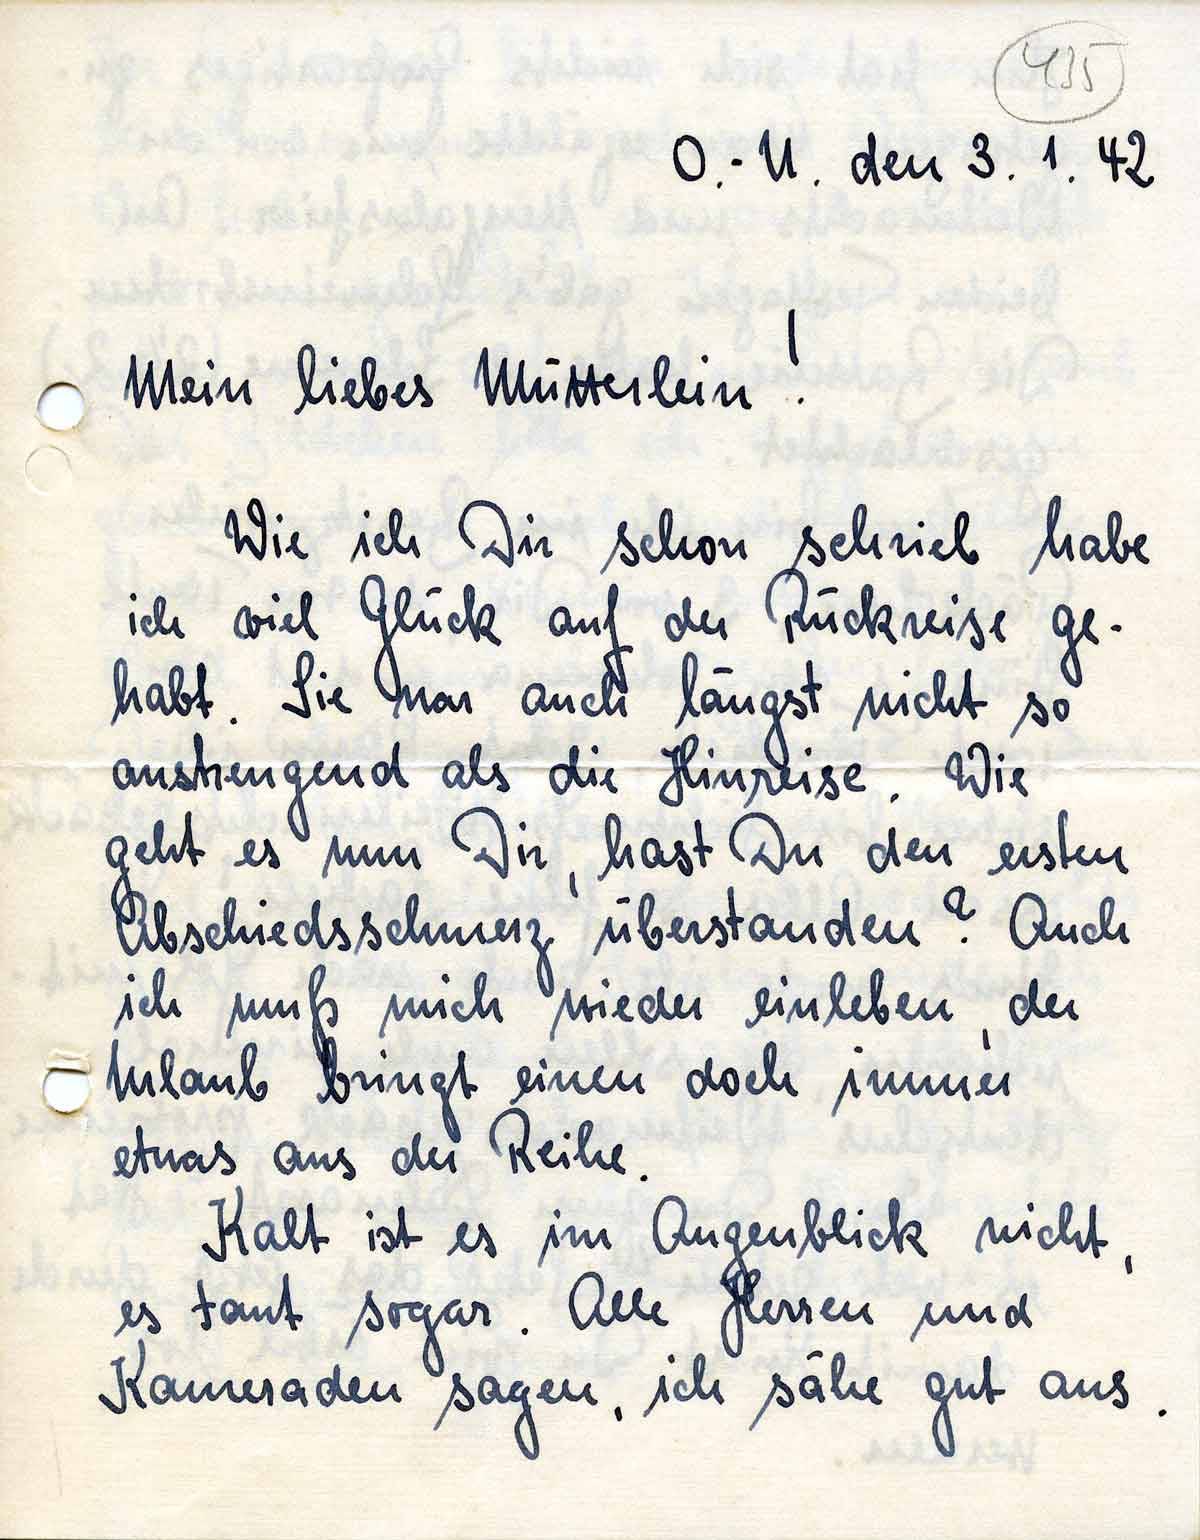 435
O.-U. den 3. 1. 42
Mein liebes Mütterlein!
Wie ich Dir schon schrieb habe
ich viel Glück auf der Rückreise ge-
habt. Sie war auch längst nicht so
anstrengend als die Hinreise. Wie
geht es nun Dir, hast Du den ersten
Abschiedsschmerz überstanden? Auch
ich muß mich wieder einleben, der
Urlaub bringt einen doch immer
etwas aus der Reihe.
Kalt ist es im Augenblick nicht,
es taut sogar. Alle Herren und
Kameraden sagen, ich sähe gut aus.